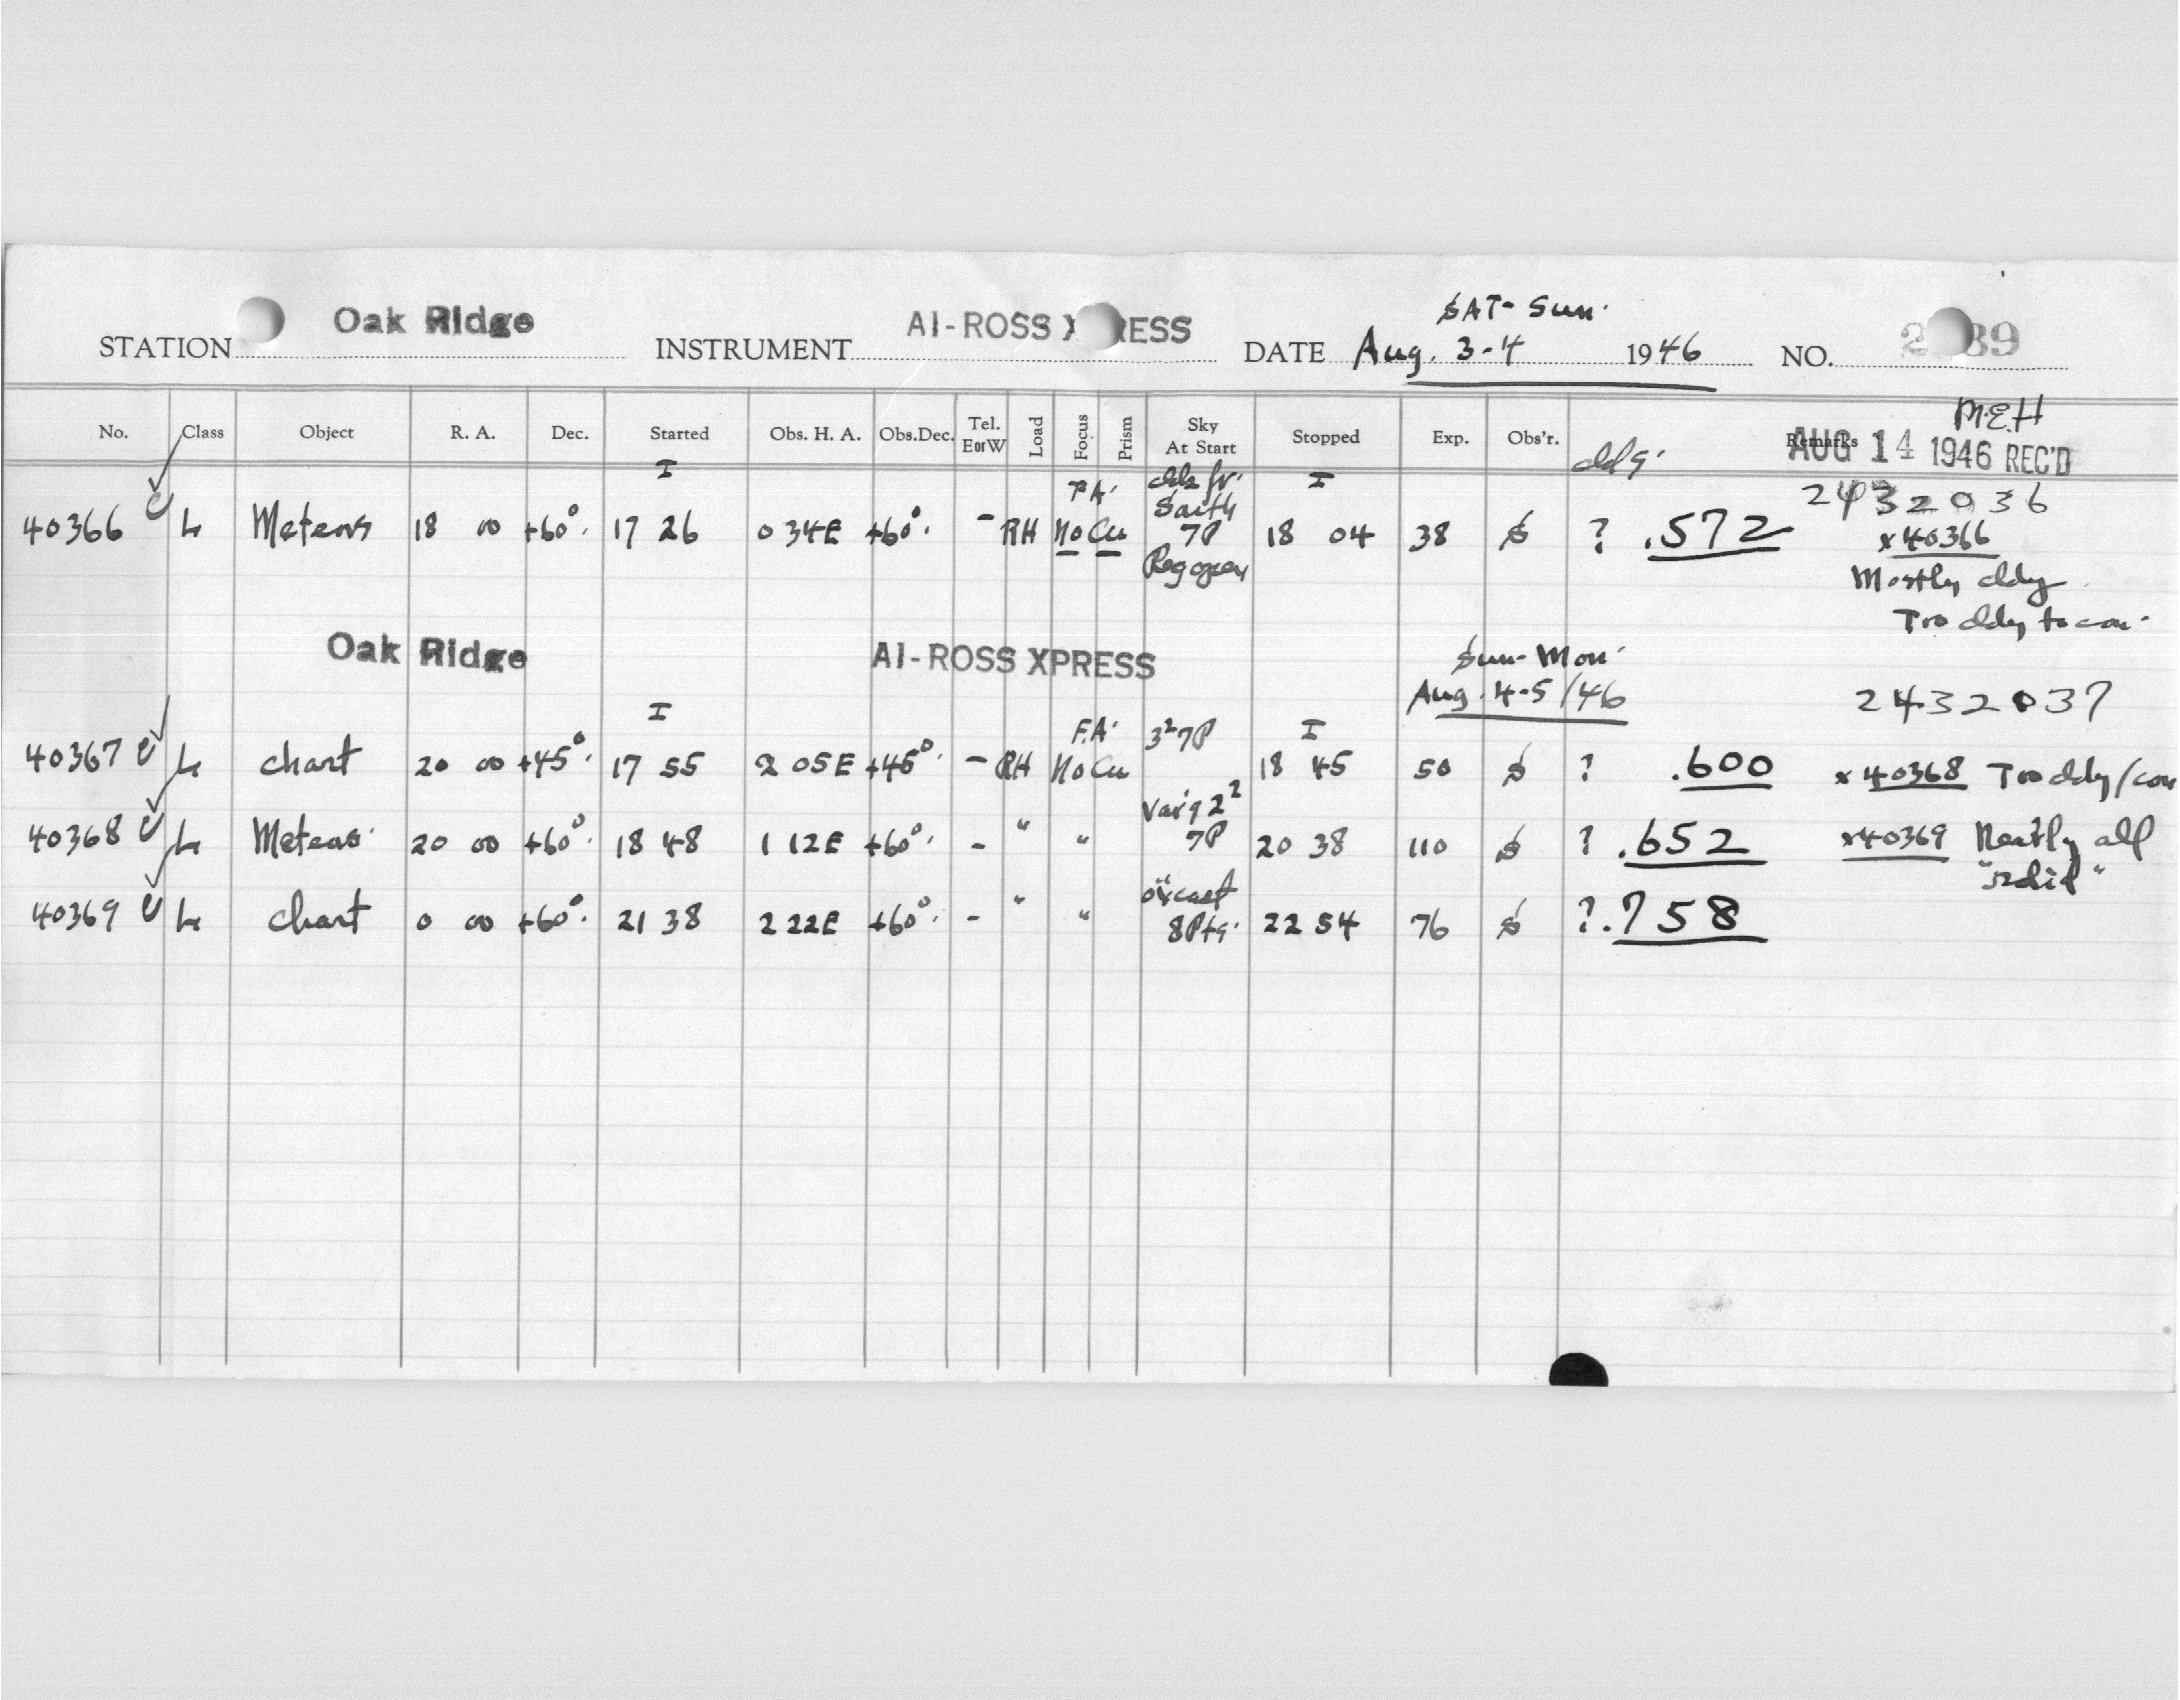 SAT-Sun.
STATION Oak Ridge INSTRUMENT AI-ROSS X RESS DATE Aug. 3-4 1946 NO. 2 39
M.E.H
No. Class Object R. A. Dec. Started Obs. H. A. Obs.Dec. Tel. EorW Load Focus Prism Sky At Start Stopped Exp. Obs'r. cldy. Remarks
AUG 14 1946 REC'D
I I 2432036
40366 L Meteors 18 00 +60°. 17 26 0 34E +60°. - RH No Cu 7P 18 04 38 $ ? .572 x40366
Mostly cldy
Too cldy to con.
Oak Ridge AI-ROSS XPRESS Sun-Mon.
Aug. 4-5/46 2432037
I F.A. I
40367 L chart 20 00 +45°. 17 55 2 05E +45°. - RH No Cu 3²7P 18 45 50 $ ? .600 x 40368 Too cldy/con
40368 L Meteor 20 00 +60°. 18 48 1 12E +60°. - " " Var'g 2² 7P 20 38 110 $ ? .652 x40369 Neatly all
40369 L chart 0 00 +60°. 21 38 2 22E +60°. - " " o'cast 22 54 76 $ ? .758